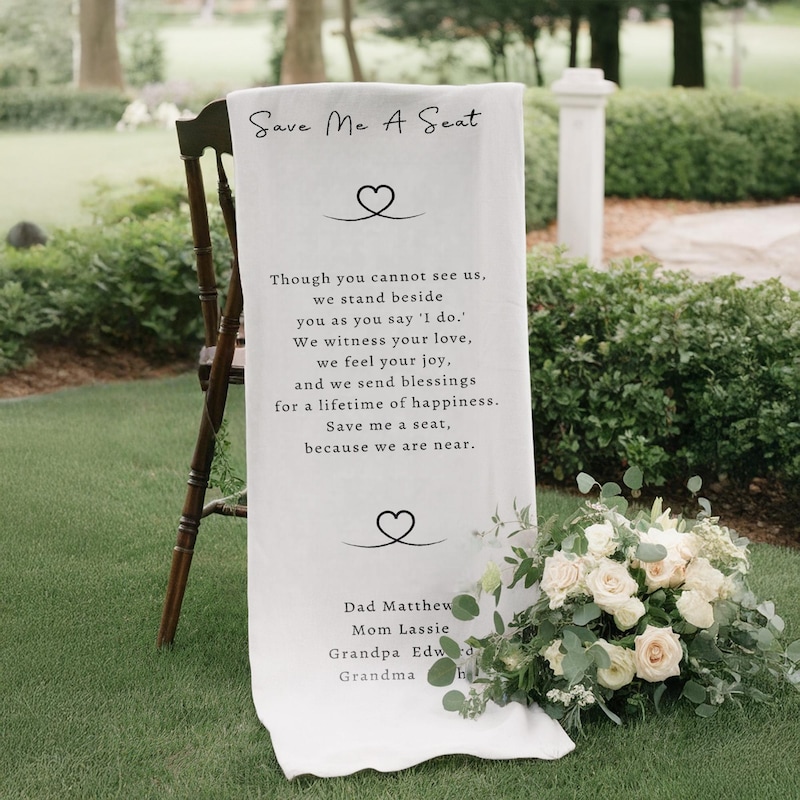 Save Me A Seat
Though you cannot see us,
we stand beside
you as you say 'I do.'
We witness your love,
we feel your joy,
and we send blessings
for a lifetime of happiness.
Save me a seat,
because we are near.
Dad Matthew
Mom Lassie
Grandpa Edward
Grandma